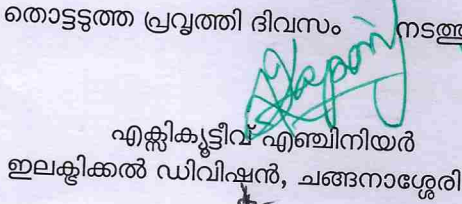 തൊട്ടടുത്ത പ്രവൃത്തി ദിവസം നടത്തു
എക്സിക്യൂട്ടീവ് എഞ്ചിനിയർ
ഇലക്ട്രിക്കൽ ഡിവിഷൻ, ചങ്ങനാശ്ശേരി